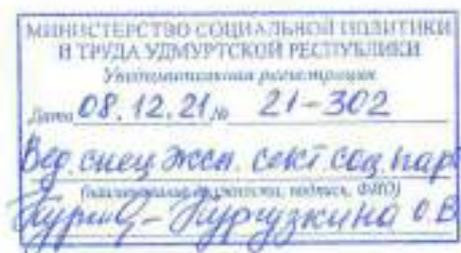 МИНИСТЕРСТВО СОЦИАЛЬНОЙ ПОЛИТИКИ
И ТРУДА УДМУРТСКОЙ РЕСПУБЛИКИ
Уведомительная регистрация
Дата 08.12.21 № 21-302
Вед. спец. эксп. сект соц. парт
(наименование должности, подпись, ФИО)
Кургузкина О.В